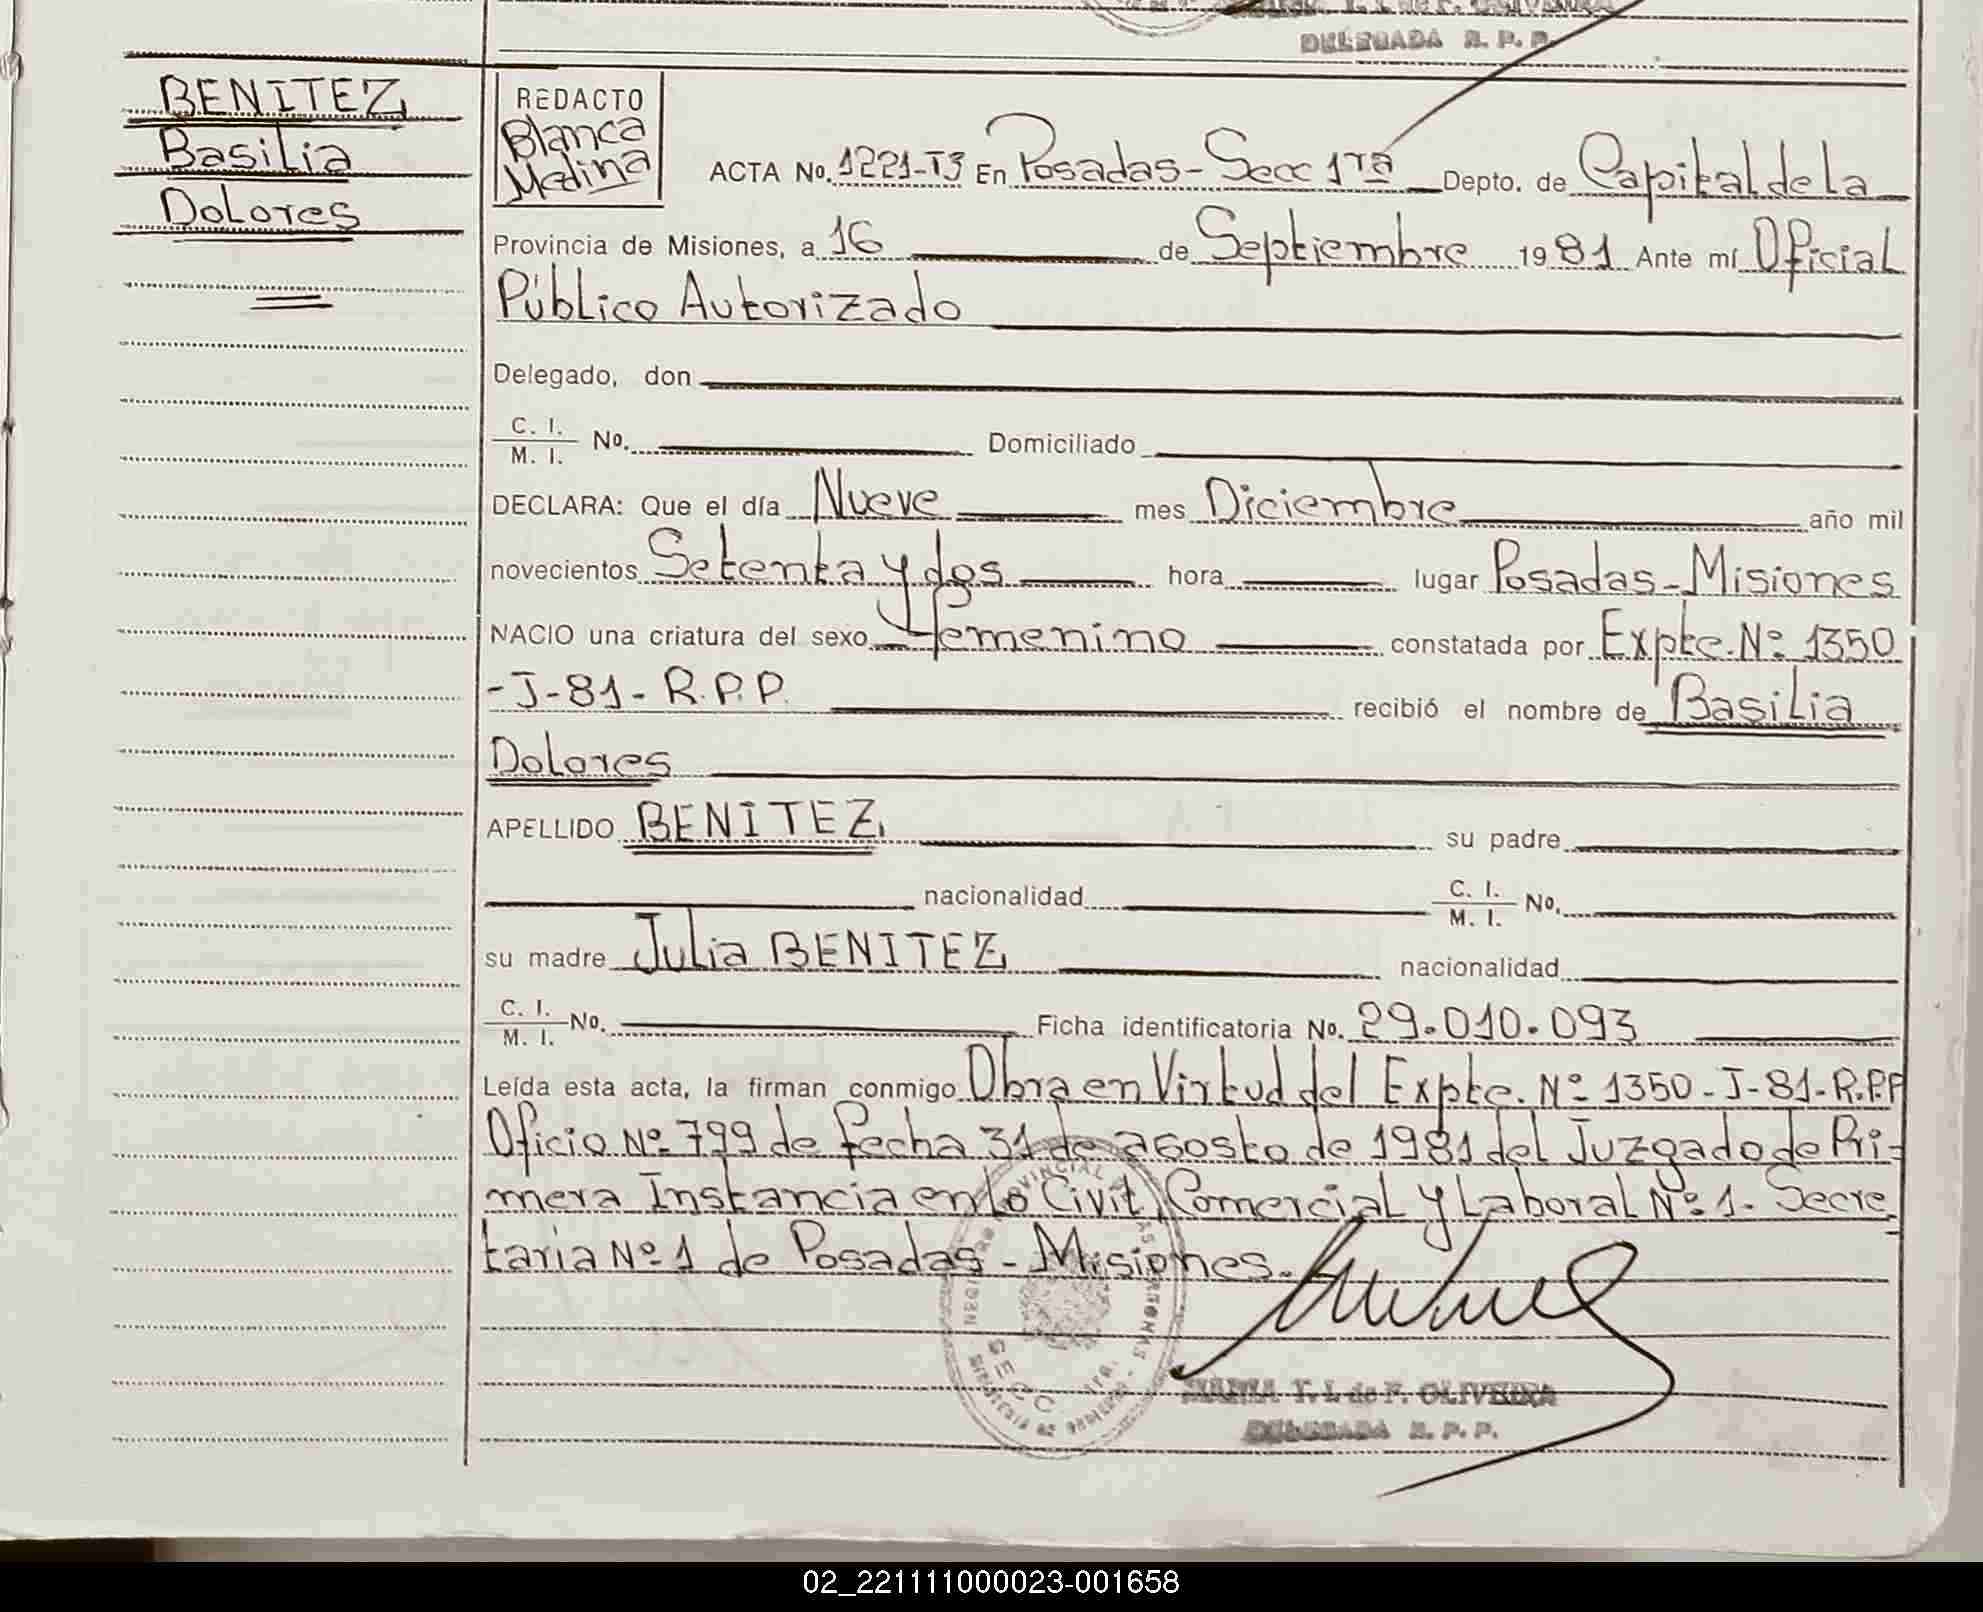 DELEGADA R. P. P.
BENITEZ
Basilia
Dolores
REDACTO
Blanca
Medina
ACTA No. 1221-T3 En Posadas - Secc 1ra Depto. de Capital de la
Provincia de Misiones, a 16 de Septiembre 1981 Ante mí Oficial
Público Autorizado
Delegado, don
C. I.
M. I. No. Domiciliado
DECLARA: Que el día Nueve mes Diciembre año mil
novecientos Setenta y dos hora lugar Posadas - Misiones
NACIO una criatura del sexo femenino constatada por Expte. Nº 1350
-J-81- R.P.P. recibió el nombre de Basilia
Dolores
APELLIDO BENITEZ su padre
nacionalidad C. I.
M. I. No.
su madre Julia BENITEZ nacionalidad
C. I.
M. I. No. Ficha identificatoria No. 29.010.093
Leída esta acta, la firman conmigo Obra en Virtud del Expte. Nº 1350 - J-81- R.P.P
Oficio Nº 799 de fecha 31 de agosto de 1981 del Juzgado de Pri-
mera Instancia en lo Civil, Comercial y Laboral Nº 1. Secre_
taria Nº 1 de Posadas - Misiones.
MARIA T. I. de F. OLIVEIRA
DELEGADA R. P. P.
SECC 1ra.
02_221111000023-001658